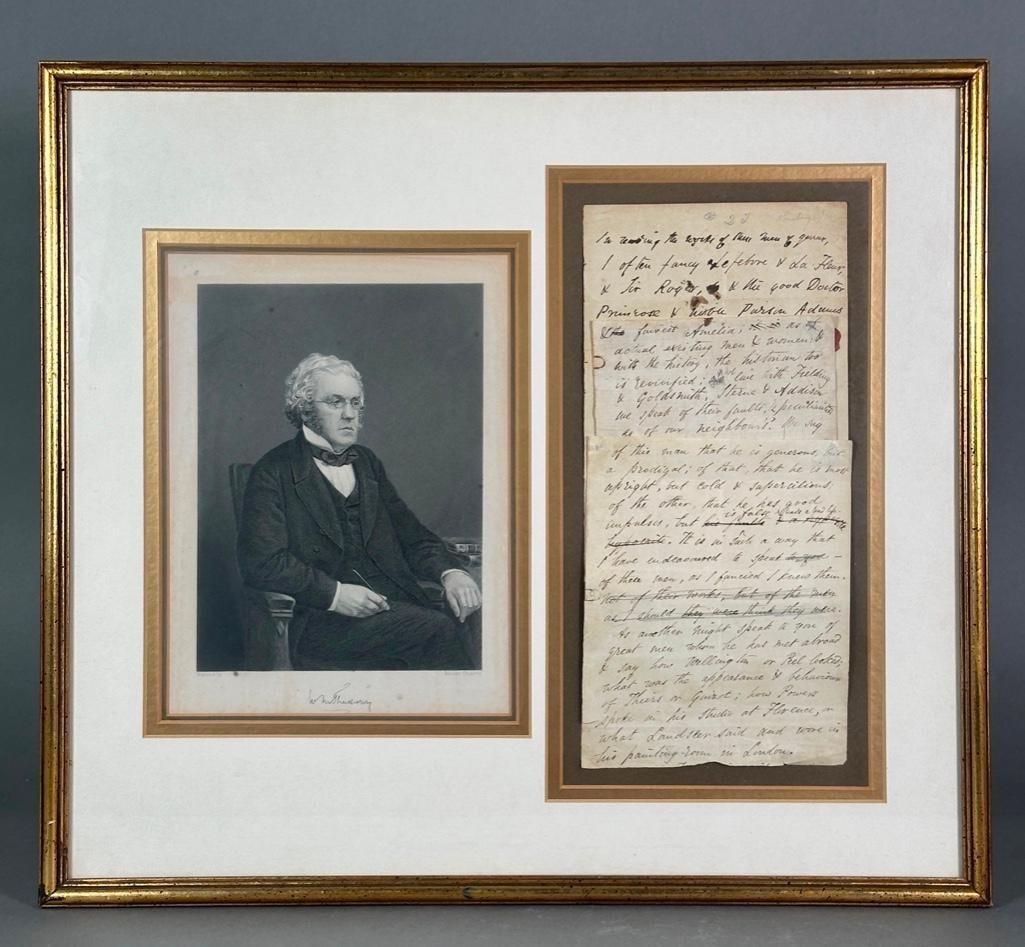 W M Thackeray
In reading the works of these men of genius,
I often fancy Lefebvre & La Fleur
& Sir Roger, & the good Doctor
Primrose & Parson Adams
& fairest Amelia; as
actual existing men & women: &
with the history, the historian too
is revivified: live with Fielding
& Goldsmith, Sterne & Addison
we speak of their faults, & peculiarities
as of our neighbours'. We say
of this man that he is generous, but
a prodigal; of that, that he is most
upright, but cold & supercilious,
of the other, that he has good
is false
impulses, but his faults
hypocrite. It is in such a way that
I have endeavoured to speak to you –
of these men, as I fancied I knew them.
not of their works, but of the men
as I should they were think they were.
As another might speak to you of
great men whom he has met abroad
& say how Wellington or Peel looked;
what was the appearance & behaviour
of Thiers or Guizot; how Powers
spoke in his studio at Florence, or
what Landseer said and wore in
his painting-room in London.